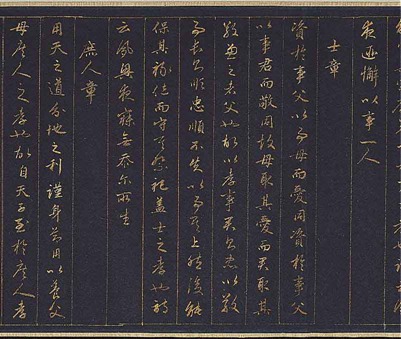 夙夜匪懈以事一人
士章
資於事父以事母而愛同資於事父
以事君而敬同故母取其愛而君取其
敬兼之者父也故以孝事君則忠以敬
事長則順忠順不失以事其上然後能
保其祿位而守其祭祀蓋士之孝也詩
云夙興夜寐無忝尔所生
庶人章
用天之道分地之利謹身節用以養父
母庶人之孝也故自天子至於庶人孝